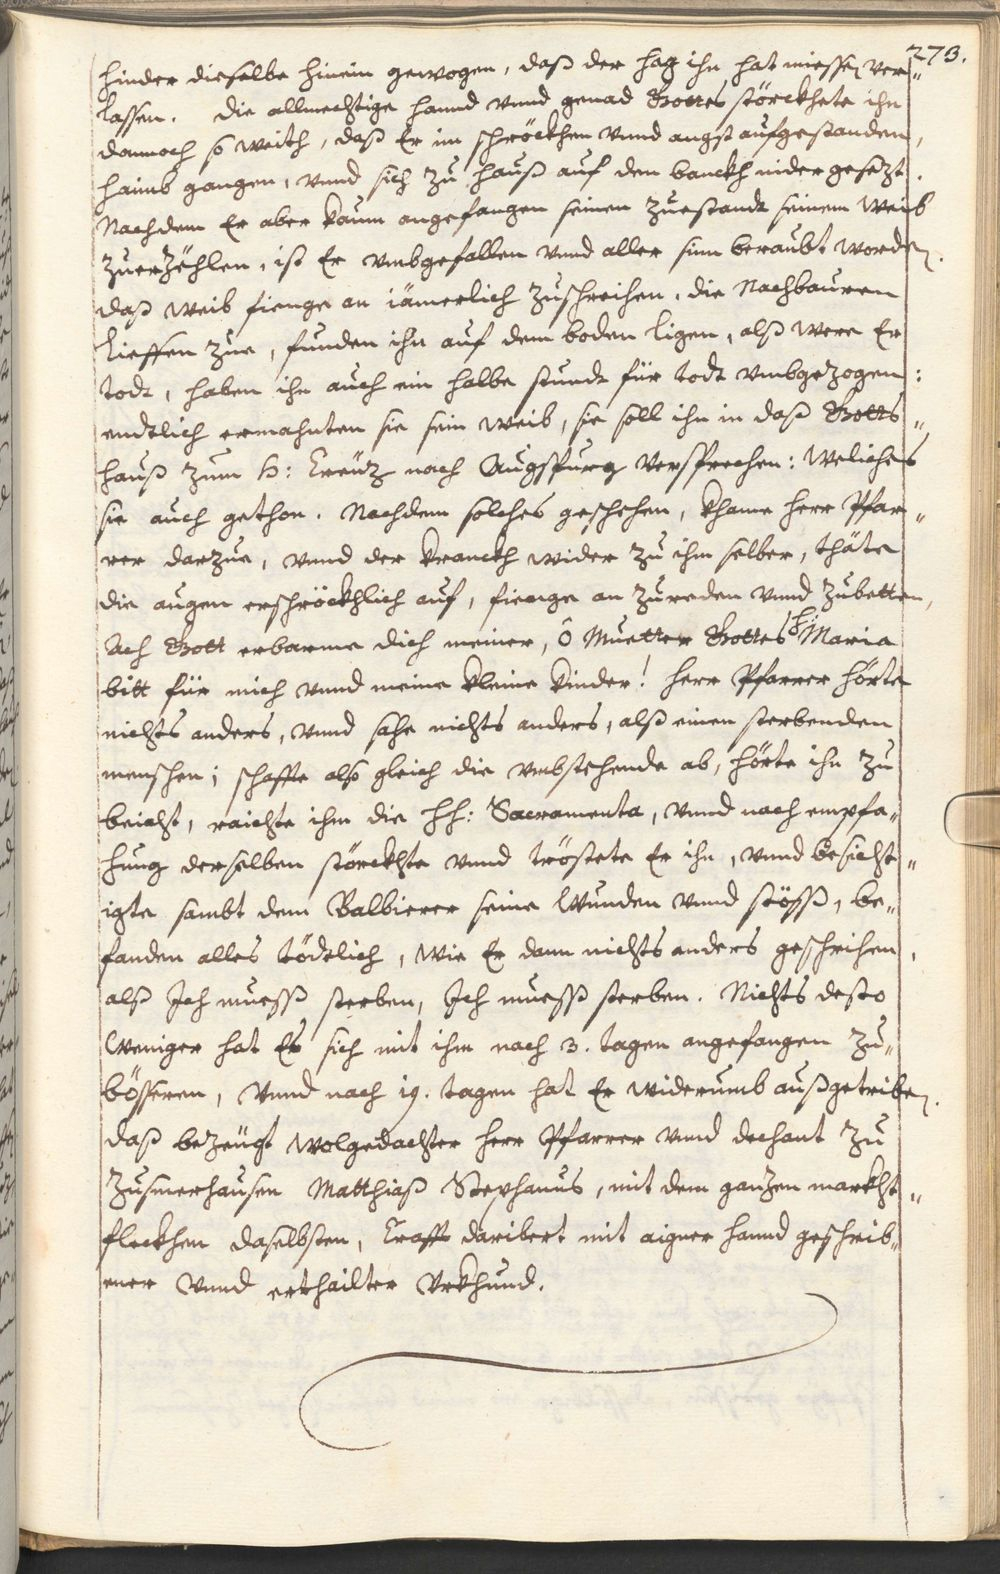 273.
hinder dieselbe hinein gewogen, daß der hag ihn hat miessen ver„
lassen. Die allmechtige hannd vnnd genad Gottes störckhete ihn
dannoch so weith, daß Er im schröckhen vnnd angst aufgestanden,
haimb gangen, vnnd sich zu hauß auf den banckh nider gesezt.
Nachdem Er aber kaum angefangen seinen zuestandt seinem Weib
zuerzehlen, ist Er vmbgefallen vnnd aller sinn beraubt worden.
daß Weib fienge an iämerlich zuschreihen, die Nachbauren
lieffen zue, funden ihn auf dem boden ligen, alß were Er
todt, haben ihn auch ein halbe stundt für todt vmbgezogen:
endtlich ermahnten sie sein Weib, sie soll ihn in daß Gotts„
hauß zum H: Creüz nach Augspurg versprechen: Weliches
sie auch gethon. Nachdem solches geschehen, khame herr Pfar„
rer darzue, vnnd der kranckh wider zu ihm selber, thäte
die augen erschröckhlich auf, fienge an zureden vnnd zubetten,
Ach Gott erbarme dich meiner, ô Muetter Gottes H: Maria
bitt für mich vnnd meine kleine kinder! herr Pfarrer hörte
nichts anders, vnnd sahe nichts anders, alß einen sterbenden
menschen; schaffte also gleich die vmbstehende ab, hörte ihn zu
beicht, raichte ihm die HH: Sacramenta, vnnd nach empfa„
hung derselben störckhte vnnd tröstete Er ihn, vnnd besicht„
igte sambt dem Balbierer seine Wunden vnnd stöß, be„
fanden alles tödtlich, wie Er dann nichts anders geschrihen,
alß Ich muess sterben, Ich muess sterben. Nichts desto
weniger hat Es sich mit ihm nach 3. tagen angefangen zu„
bösseren, vnnd nach 19. tagen hat Er widerumb außgetriben.
daß bezeügt wolgedachter herr Pfarrer vnnd dechant zu
Zusmerhausen Matthiaß Stephanus, mit dem ganzen marckht„
fleckhen daselbsten, Crafft daribert mit aigner hannd geschrib„
ener vnnd erthailter Vrkhund.